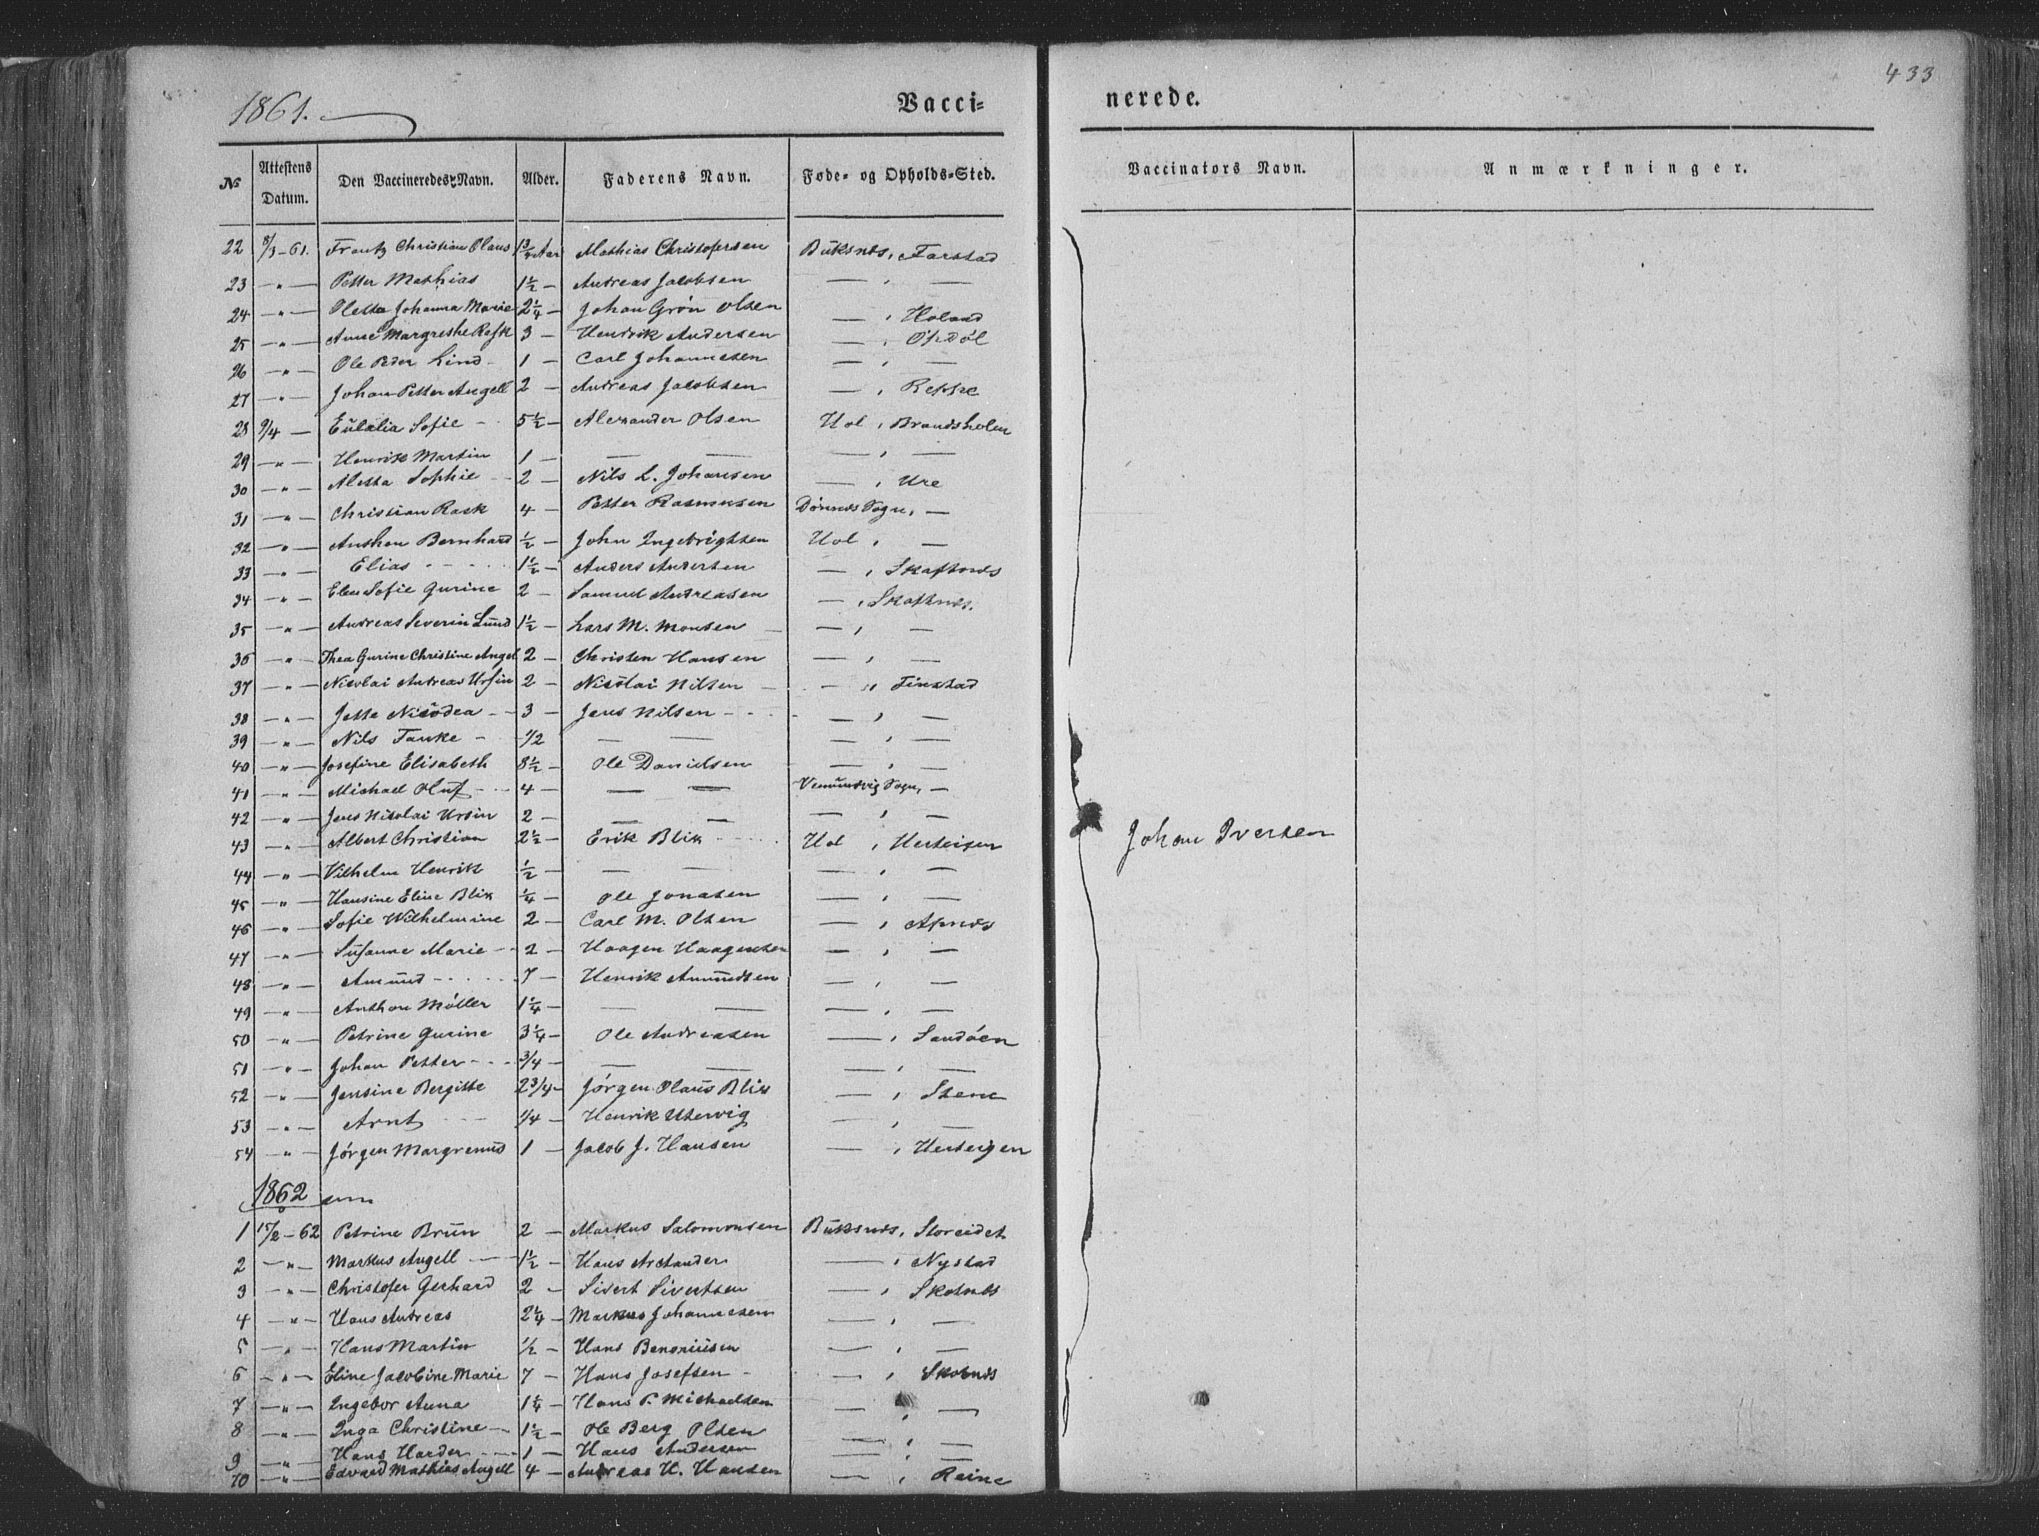 433
1861.
Vacci= nerede.
No Attestens Datum. Den Vaccineredes Navn. Alder. Faderens Navn. Føde- og Opholds-Sted. Vaccinators Navn. Anmærkninger.
22 8/3-61. Frantz Christian Olaus 1 3/4 Aar Mathias Christofersen Buksnes, Farstad
23 — " — Petter Mathias 1 1/2 — Andreas Jacobsen — , —
24 — " — Oletta Johanna Marie 2 1/4 — Johan Grön Olsen — , Holand
25 — " — Anne Margrethe Refk 3 — Henrik Andersen — , Opdöl
26 — " — Ole Peder Lind 1 — Carl Johannesen — , —
27 — " — Johan Petter Angell 2 — Andreas Jacobsen — , Reppe
28 9/4 — Eulalia Sofie 5 1/2 — Alexander Olsen Hol , Brandsholm
29 — " — Henrik Martin 1 — — — — , —
30 — " — Aletta Sophie 2 — Nils L. Johansen — , Ure
31 — " — Christian Rask 4 — Petter Rasmussen Dönnes Sogn, —
32 — " — Anthon Bernhard 1/2 — John Ingebrigtsen Hol , —
33 — " — Elias 1 1/2 — Anders Andersen — , Skaftnes
34 — " — Elen Sofie Gurine 2 — Samuel Andreasen — , Skaftnes.
35 — " — Andreas Severin Lund 1 1/2 — Lars M. Monsen — , —
36 — " — Thea Gurine Christine Angel 2 — Christen Hansen — , —
37 — " — Nicolai Andreas Ursin 2 — Nicolai Nilsen — " Finstad
38 — " — Jette Nicodea 3 — Jens Nilsen — , —
39 — " — Nils Tanke 1/2 — — — , —
40 — " — Josefine Elisabeth 8 1/2 — Ole Danielsen — , —
41 — " — Michael Oluf 4 — — — Vemundsvig Sogn, —
42 — " — Jens Nicolai Ursin 2 — — — — , —
43 — " — Albert Christian 2 1/2 — Erik Blix Hol , Hesteigen Johan Iversen
44 — " — Vilhelm Henrik 1/2 — — — — , —
45 — " — Hansine Eline Blix 1/4 — Ole Jonasen — , —
46 — " — Sofie Wilhelmine 2 — Carl M. Olsen — , Apnes
47 — " — Susanne Marie 2 Haagen Haagensen — , —
48 — " — Amund 7 — Henrik Amundsen — , —
49 — " — Anthon Möller 1 1/4 — — — — , —
50 — " — Petrine Gurine 3 1/4 — Ole Andreasen — , Sandöen
51 — " — Johan Petter 3/4 — — — — , —
52 — " — Jensine Bergitte 2 3/4 — Jörgen Olaus Blix — , Stene
53 — " — Arnt 1/4 — Henrik Utervig — , —
54 — " — Jörgen Margrenus 1 — Jacob J. Hansen — , Hesteigen
1862
1 15/2-62 Petrine Brun 2 — Markus Salomonsen Buksnes, Storeidet
2 — " — Markus Angell 1 1/2 — Hans Arctander — , Nystad
3 — " — Christofer Gerhard 2 — Sivert Sivertsen — , Skotnes
4 — " — Hans Andreas 2 1/4 — Markus Johannesen — , —
5 — " — Hans Martin 1/2 — Hans Benoniusen — , —
6 — " — Eline Jacobine Marie 7 — Hans Josefsen — , Skotnes
7 — " — Ingebor Anna 1 1/4 — Hans P. Michaelsen — , —
8 — " — Inga Christine 1 1/2 — Ole Berg Olsen — , —
9 — " — Hans Harder 1 — Hans Andersen — , —
10 — " — Edvard Mathias Angell 4 — Andreas H. Hansen — , Reine